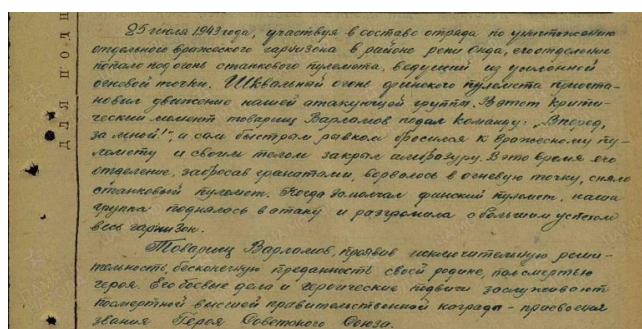 25 июля 1943 года, участвуя в составе отряда по уничтожению
отдельного вражеского гарнизона в районе реки Онда, его отделение
попало под огонь станкового пулемета, ведущий из усиленной
огневой точки. Шквальный огонь финского пулемета приоста-
новил движение нашей атакующей группы. В этот крити-
ческий момент товарищ Варламов подал команду: „Вперед,
за мной!", и сам быстрым рывком бросился к вражескому пу-
лемету и своим телом закрыл амбразуру. В это время его
отделение, забросав гранатами, ворвалось в огневую точку, сняло
станковый пулемет. Когда замолчал финский пулемет, наша
группа поднялась в атаку и разгромила с большим успехом
весь гарнизон.
Товарищ Варламов, проявив исключительную реши-
тельность, бесконечную преданность своей родине, пал смертью
героя. Его боевые дела и героические подвиги заслуживают
посмертной высшей правительственной награды - присвоения
звания Героя Советского Союза.
ДЛЯ ПОДШ